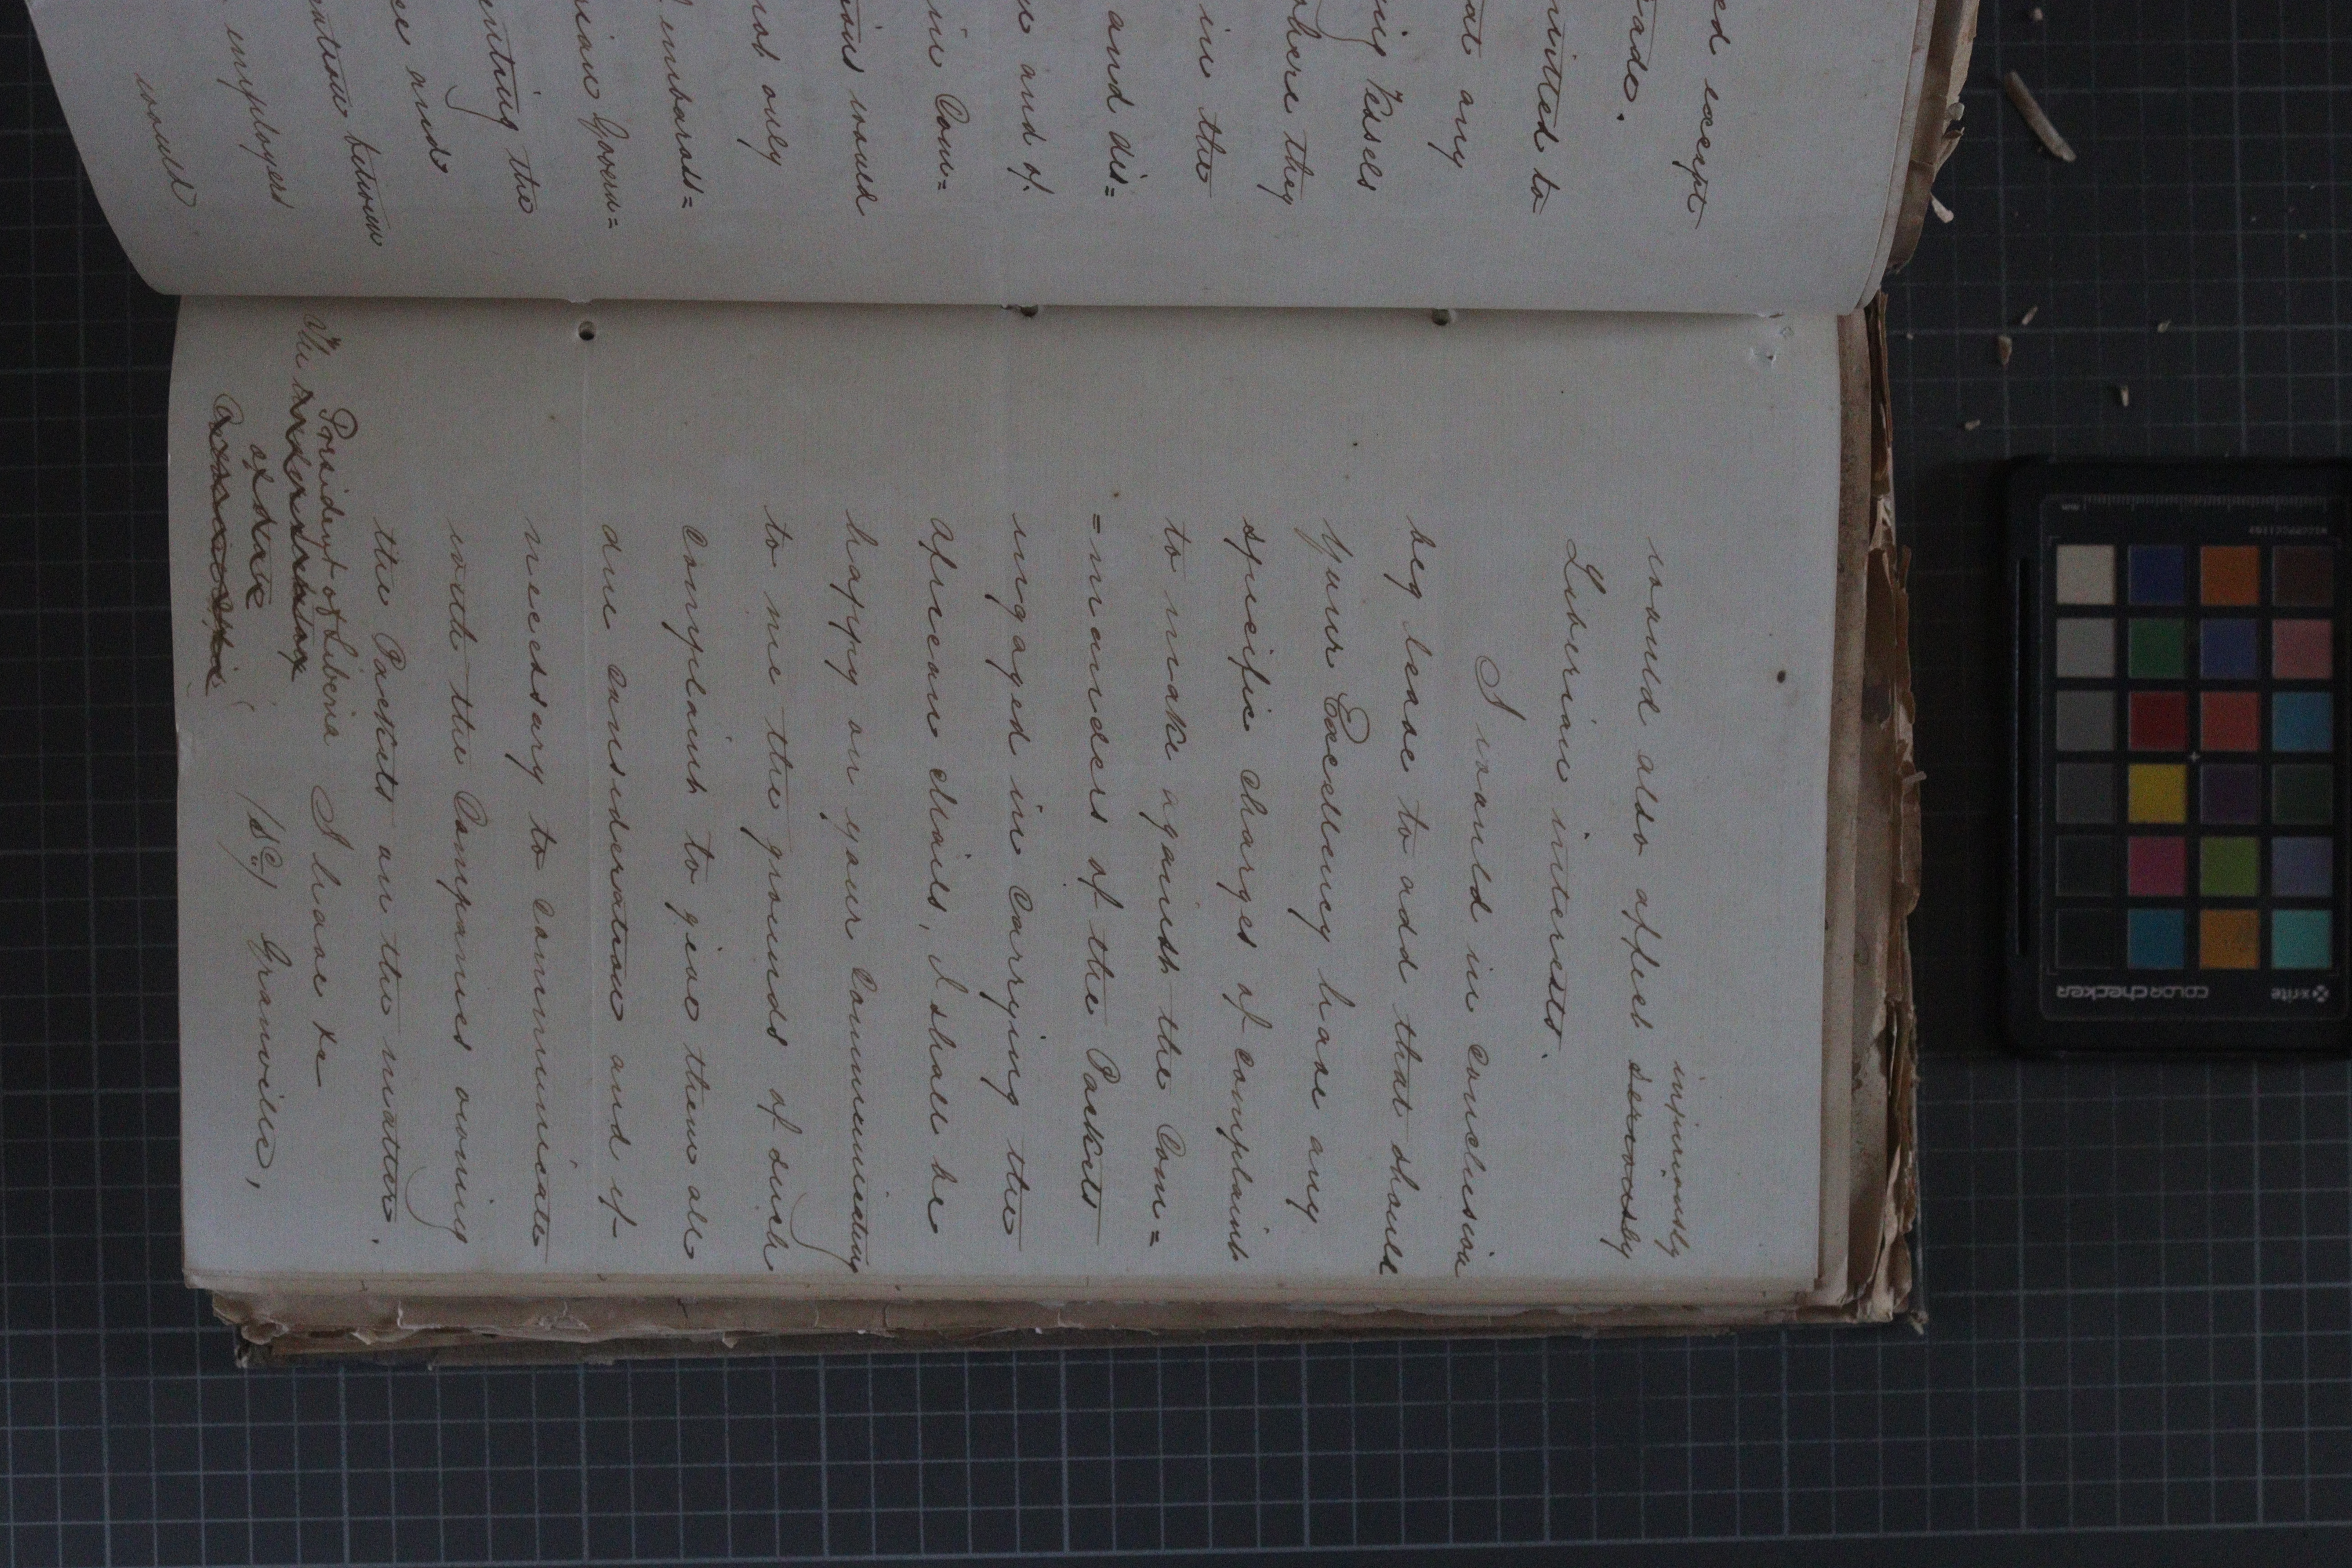 ed except
rade.
mitted to
at any
ing Vessels
where they
in the
and dis=
and of
ine Com=
would
not only
embarass=
rian Govern=
enting the
ce and
between
employers
would
injuriously
would also affect seriously
Liberian interests.
I would in conclusion
beg leave to add that should
Your Excellency have any
specific charges of complaint
to make against the Com=
=manders of the Packets
engaged in carrying the
African Mails, I shall be
happy on your Communicating
to me the grounds of such
complaint to give them all
due consideration and if
necessary to Communicate
with the Companies owning
the Packets on the matter.
President of Liberia I have &c
The
of the
(Sd) Granville,